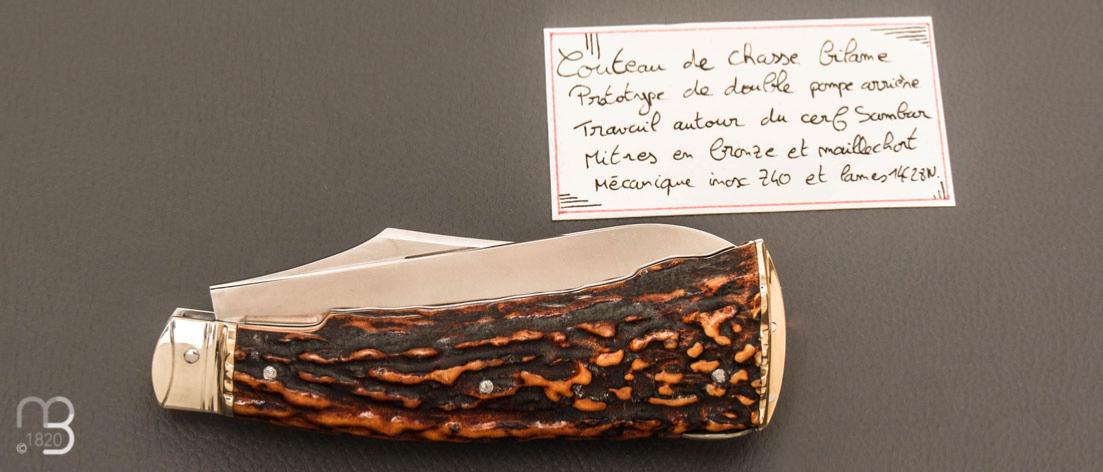 Couteau de chasse bilame
Prototype de double pompe arrière
Travail autour du cerf Sambar
Mitres en bronze et maillechort
Mécanique inox Z40 et lames 14C28N.
MB
©1820